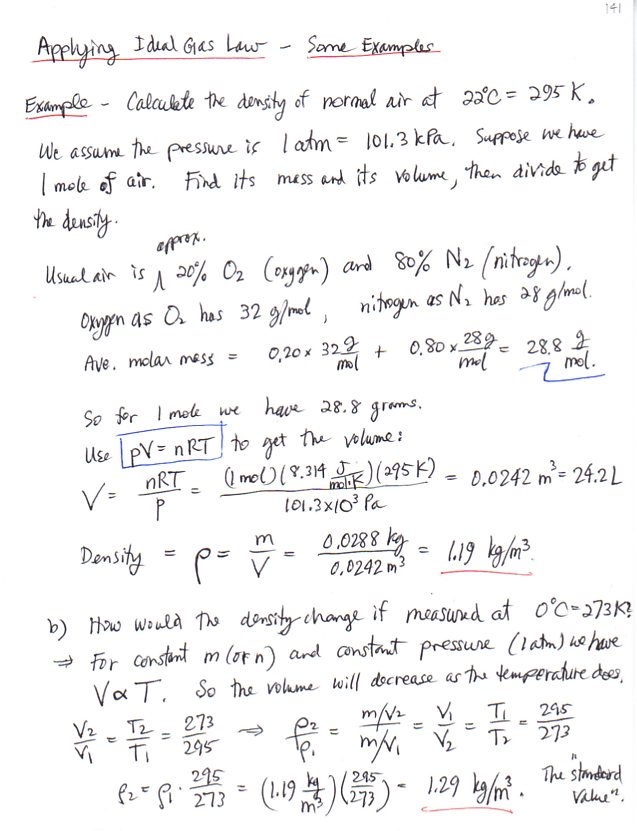 141
Applying Ideal Gas Law - Some Examples
Example - Calculate the density of normal air at 22°C = 295 K.
We assume the pressure is 1 atm = 101.3 kPa. Suppose we have
1 mole of air. Find its mass and its volume, then divide to get
the density.
approx.
Usual air is ∧ 20% O₂ (oxygen) and 80% N₂ (nitrogen).
Oxygen as O₂ has 32 g/mol, nitrogen as N₂ has 28 g/mol.
Ave. molar mass = 0.20 × 32 g/mol + 0.80 × 28 g/mol = 28.8 g/mol.
So for 1 mole we have 28.8 grams.
Use pV = nRT to get the volume:
V = nRT/P = (1 mol)(8.314 J/mol·K)(295 K)/101.3×10³ Pa = 0.0242 m³ = 24.2 L
Density = ρ = m/V = 0.0288 kg/0.0242 m³ = 1.19 kg/m³.
b) How would the density change if measured at 0°C = 273 K?
⇒ For constant m (or n) and constant pressure (1 atm) we have
V ∝ T. So the volume will decrease as the temperature does.
V₂/V₁ = T₂/T₁ = 273/295 ⇒ ρ₂/ρ₁ = m/V₂ / m/V₁ = V₁/V₂ = T₁/T₂ = 295/273
ρ₂ = ρ₁ · 295/273 = (1.19 kg/m³)(295/273) = 1.29 kg/m³. The "standard
value".